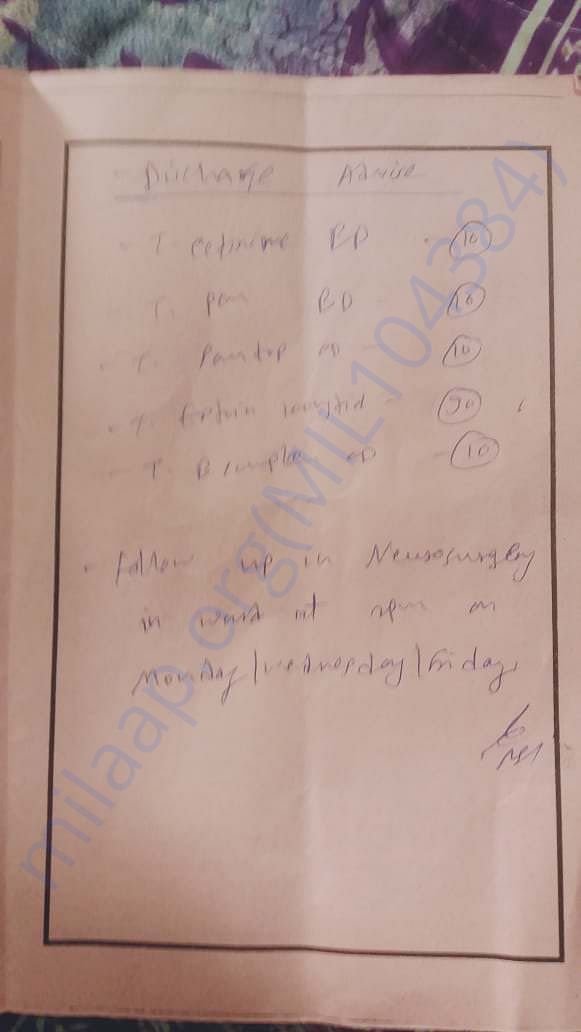 Discharge Advise
- T. cefixime BD - 10
- T. Pan BD - 10
- T. Pantop OD - 10
- T. Eptoin 100mg tid - 90
- T. B complex OD - 10
- Follow up in Neurosurgery
in ward at 2pm on
Monday/Wednesday/Friday
milaap.org(MIL1043384)